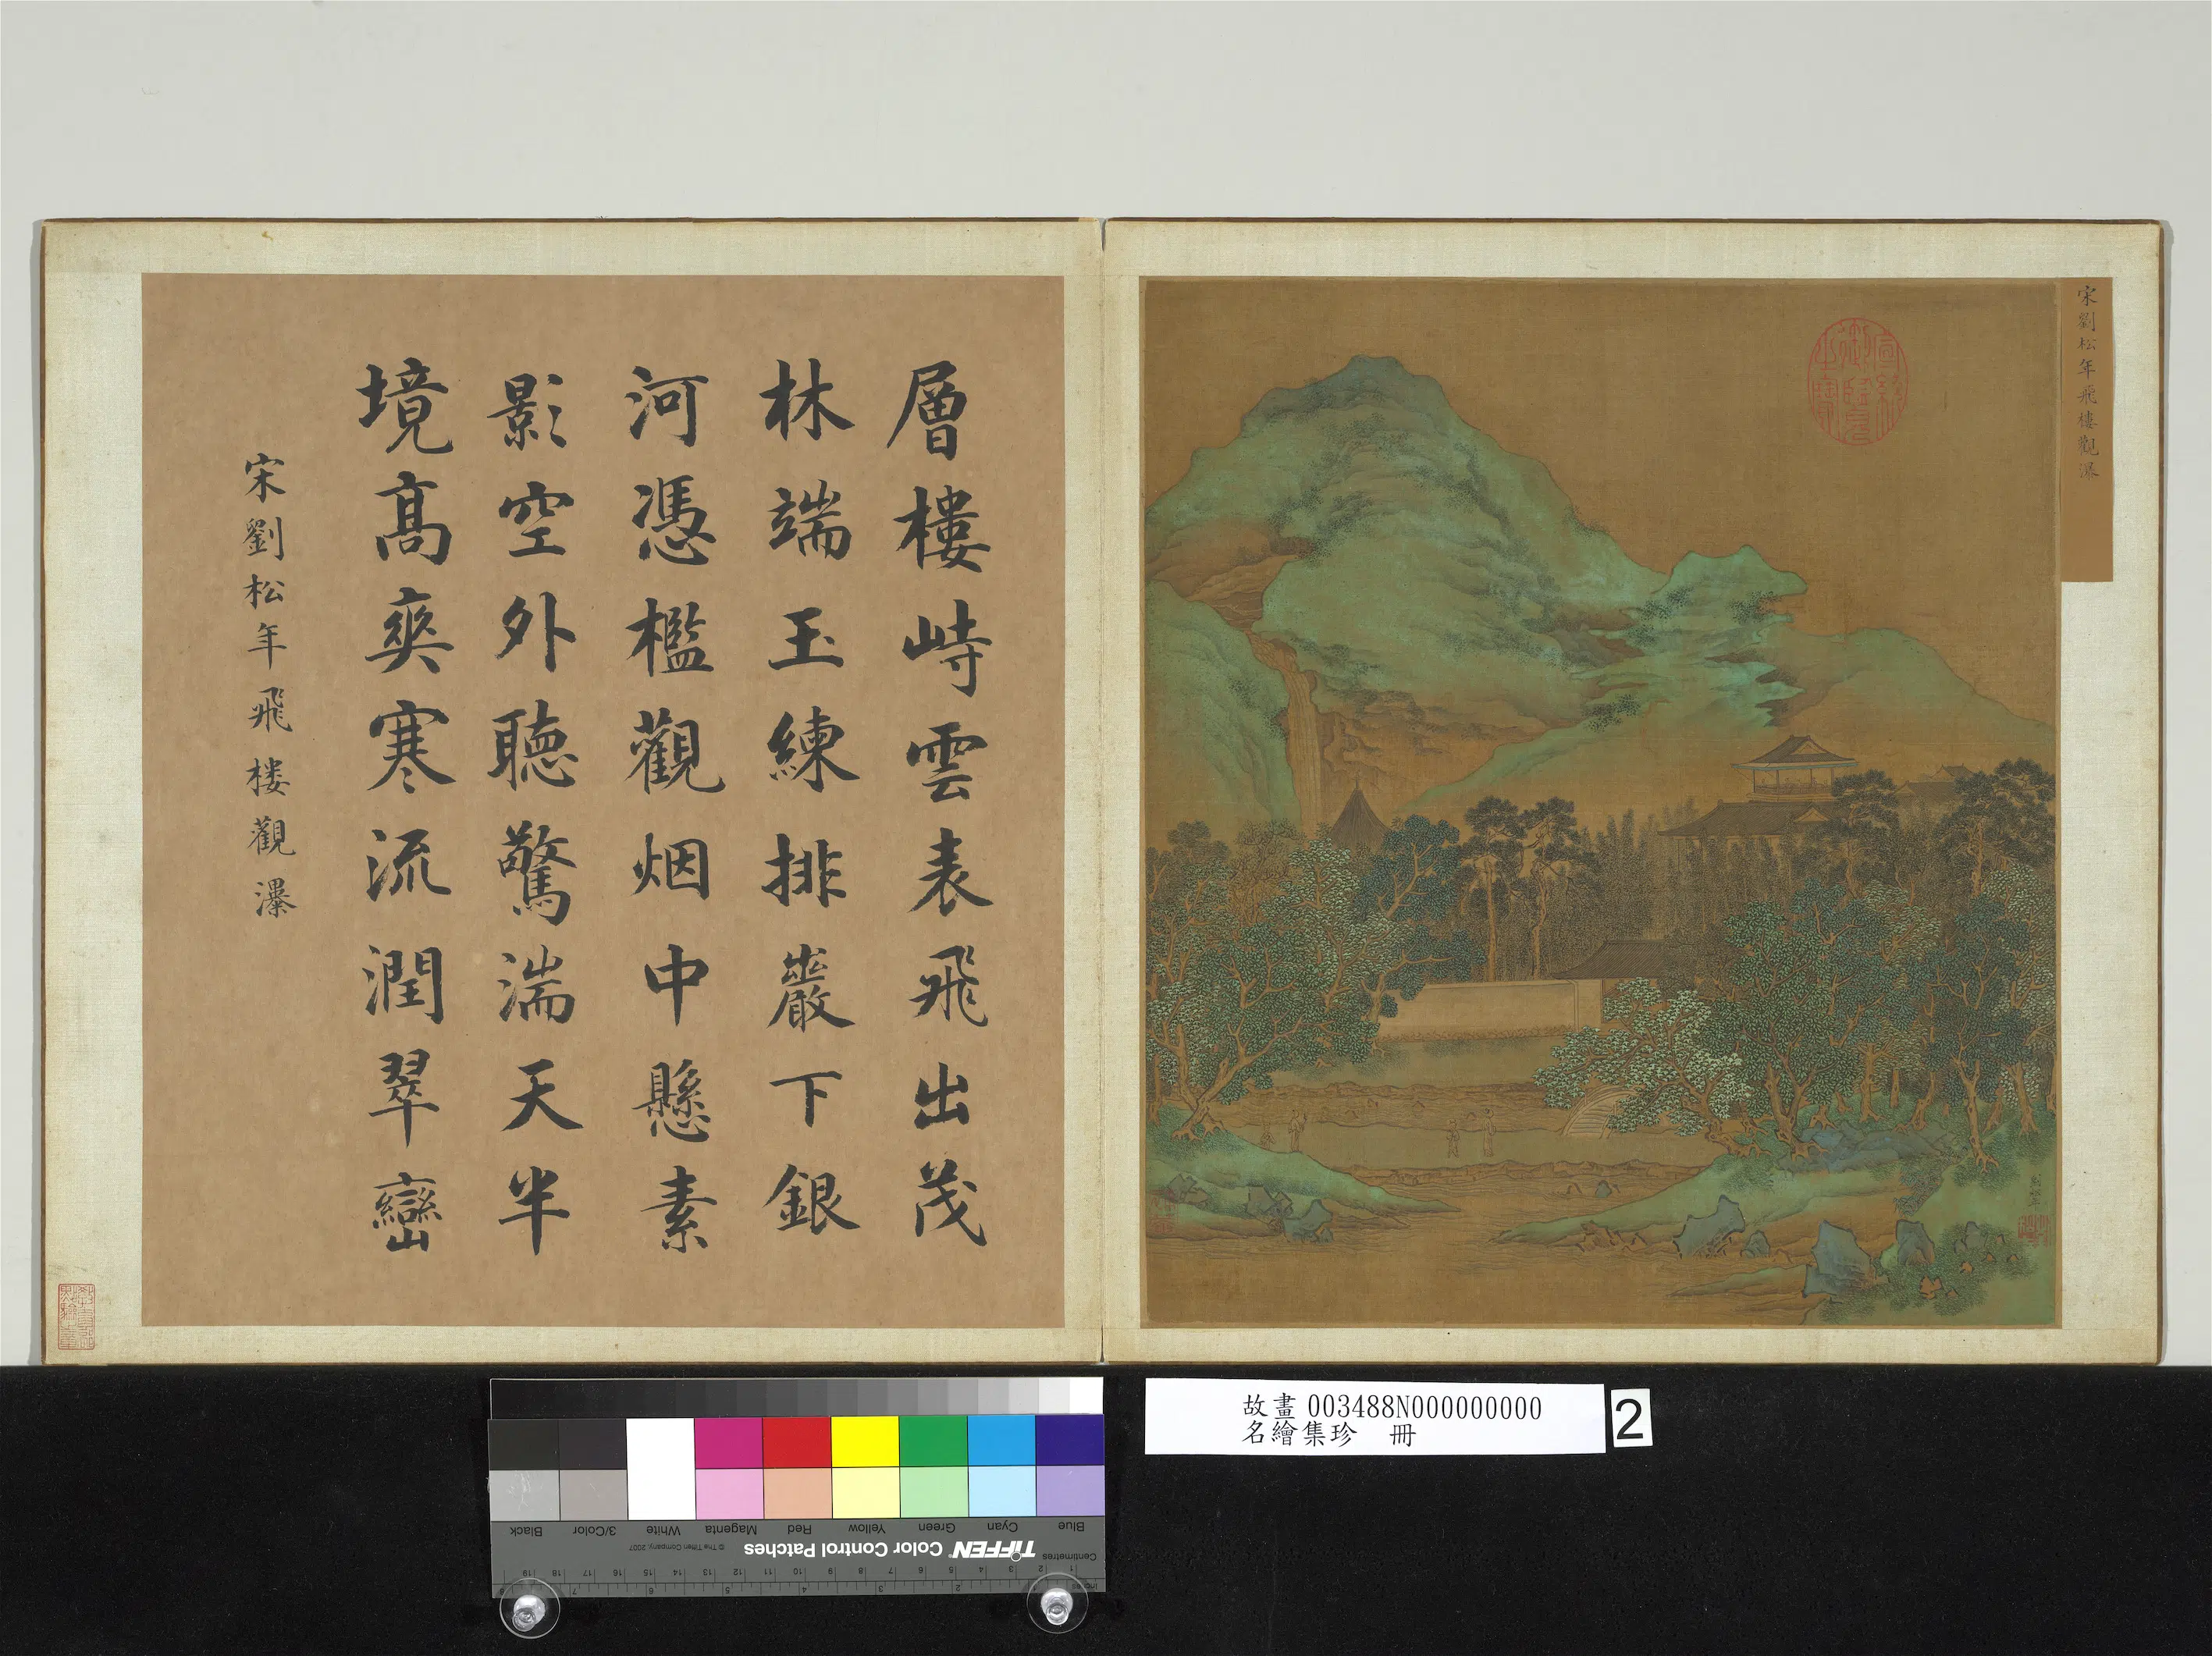 宋劉松年飛樓觀瀑
層樓峙雲表飛出茂
林端玉練排巖下銀
河憑檻觀烟中懸素
影空外聽驚湍天半
境高爽寒流潤翠巒
宋劉松年飛樓觀瀑
故畫 003488N000000000
名繪集珍 冊
2
Blue Cyan Green Yellow Red Magenta White 3/Color Black
TIFFEN Color Control Patches © The Tiffen Company, 2007
Centimetres 1 2 3 4 5 6 7 8 9 10 11 12 13 14 15 16 17 18 19